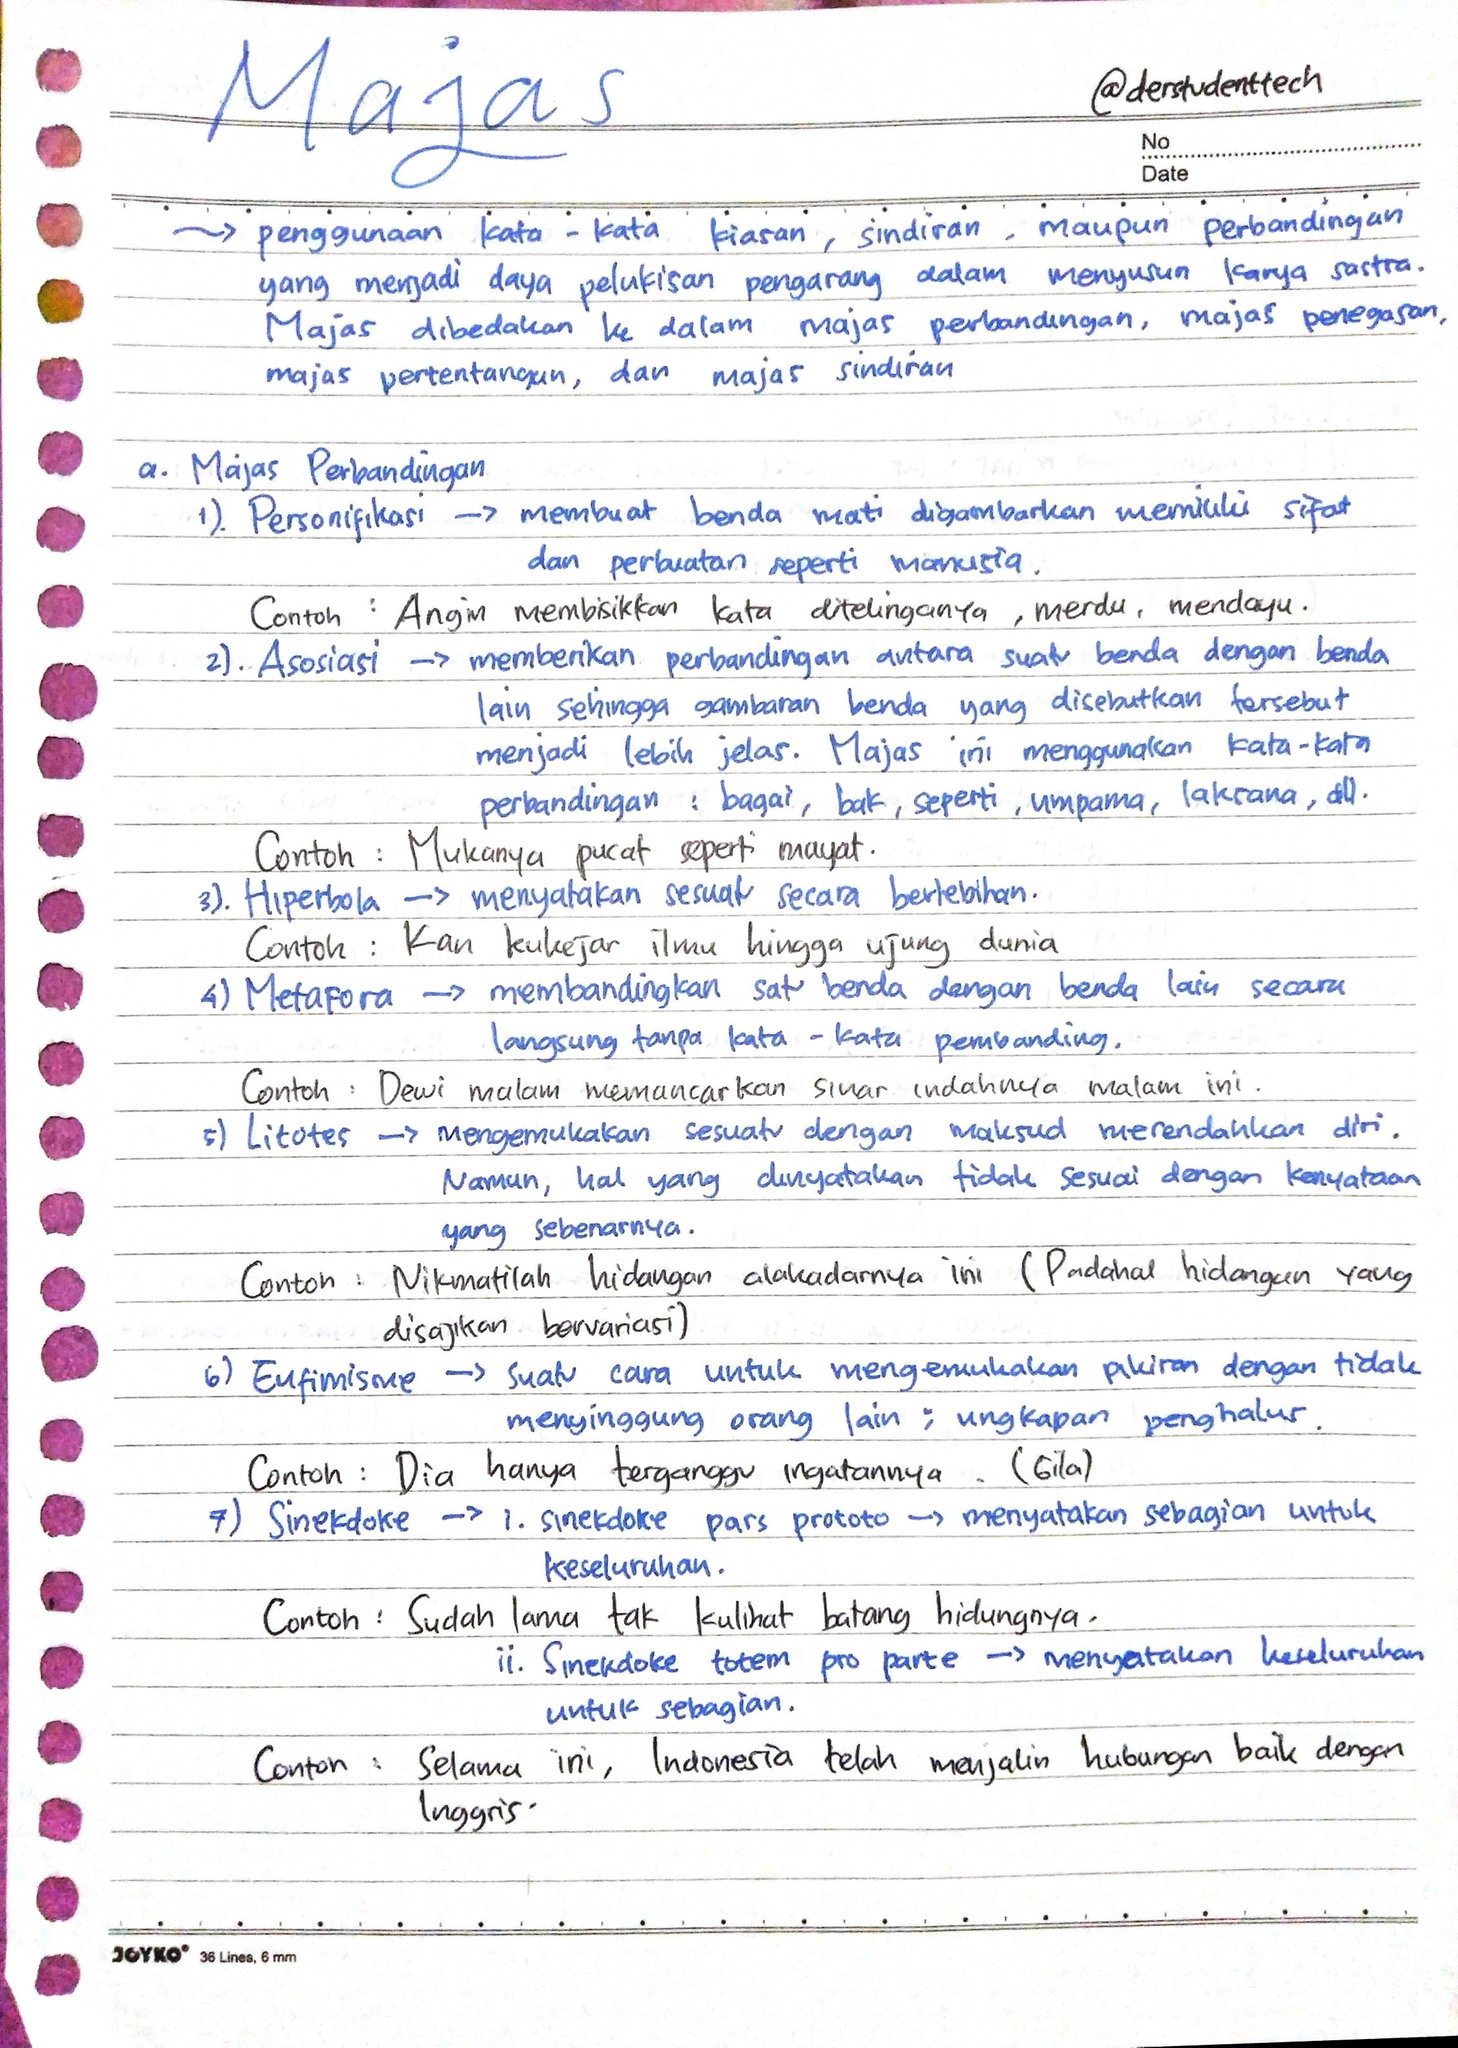 Majas
@derstudenttech
No
Date
~> penggunaan kata - kata kiasan, sindiran, maupun perbandingan
yang menjadi daya pelukisan pengarang dalam menyusun karya sastra.
Majas dibedakan ke dalam majas perbandingan, majas penegasan,
majas pertentangan, dan majas sindiran
a. Majas Perbandingan
1). Personifikasi -> membuat benda mati digambarkan memiliki sifat
dan perbuatan seperti manusia.
Contoh : Angin membisikkan kata ditelinganya, merdu, mendayu.
2). Asosiasi -> memberikan perbandingan antara suatu benda dengan benda
lain sehingga gambaran benda yang disebutkan tersebut
menjadi lebih jelas. Majas ini menggunakan kata-kata
perbandingan : bagai, bak, seperti, umpama, laksana, dll.
Contoh : Mukanya pucat seperti mayat.
3). Hiperbola -> menyatakan sesuatu secara berlebihan.
Contoh : Kan kukejar ilmu hingga ujung dunia
4) Metafora -> membandingkan satu benda dengan benda lain secara
langsung tanpa kata - kata pembanding.
Contoh : Dewi malam memancarkan sinar indahnya malam ini.
5) Litotes -> mengemukakan sesuatu dengan maksud merendahkan diri.
Namun, hal yang dinyatakan tidak sesuai dengan kenyataan
yang sebenarnya.
Contoh : Nikmatilah hidangan alakadarnya ini (Padahal hidangan yang
disajikan bervariasi)
6) Eufimisme -> suatu cara untuk mengemukakan pikiran dengan tidak
menyinggung orang lain ; ungkapan penghalus.
Contoh : Dia hanya terganggu ingatannya. (Gila)
7) Sinekdoke -> i. sinekdoke pars prototo -> menyatakan sebagian untuk
keseluruhan.
Contoh : Sudah lama tak kulihat batang hidungnya.
ii. Sinekdoke totem pro parte -> menyatakan keseluruhan
untuk sebagian.
Contoh : Selama ini, Indonesia telah menjalin hubungan baik dengan
Inggris.
JOYKO® 36 Lines, 6 mm